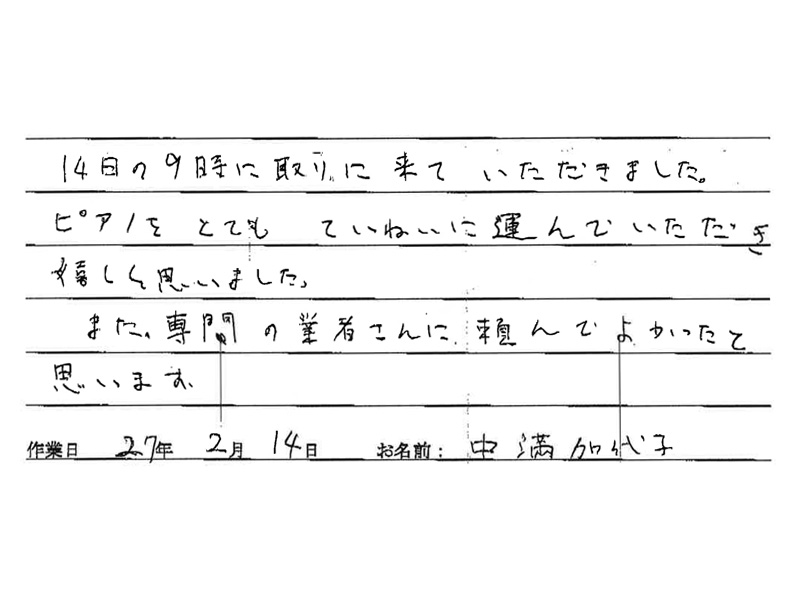 14日の9時に取りに来ていただきました。
ピアノをとてもていねいに運んでいただき
嬉しく思いました。
また、専門の業者さんに頼んでよかったと
思います。
作業日 27年 2月 14日 お名前: 中満加代子